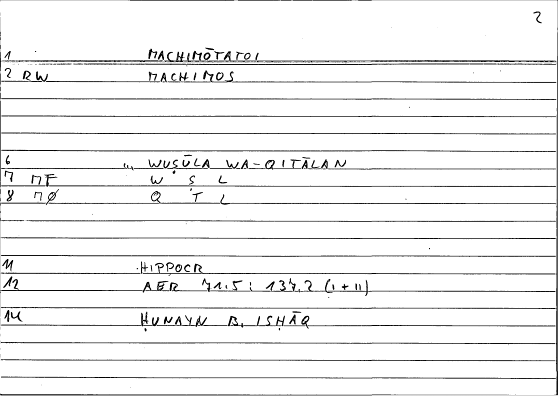 2
1 MACHIMŌTATOI
2 RW MACHIMOS
6 ... WUṢŪLA WA-QITĀLAN
7 MF W Ṣ L
8 MØ Q T L
11 HIPPOCR
12 AER 71.5 : 137.2 (I + II)
14 ḤUNAYN B. ISḤĀQ